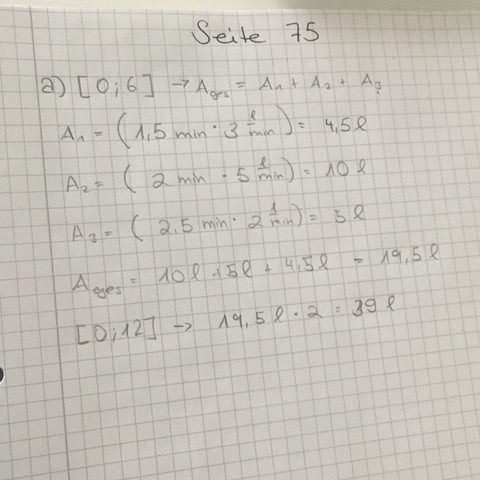 Seite 75
a) [0;6] → A ges = A1 + A2 + A3
A1 = (1,5 min · 3 l/min) = 4,5 l
A2 = ( 2 min · 5 l/min) = 10 l
A3 = ( 2,5 min · 2 l/min) = 5 l
A ges = 10 l + 5 l + 4,5 l = 19,5 l
[0;12] → 19,5 l · 2 = 39 l